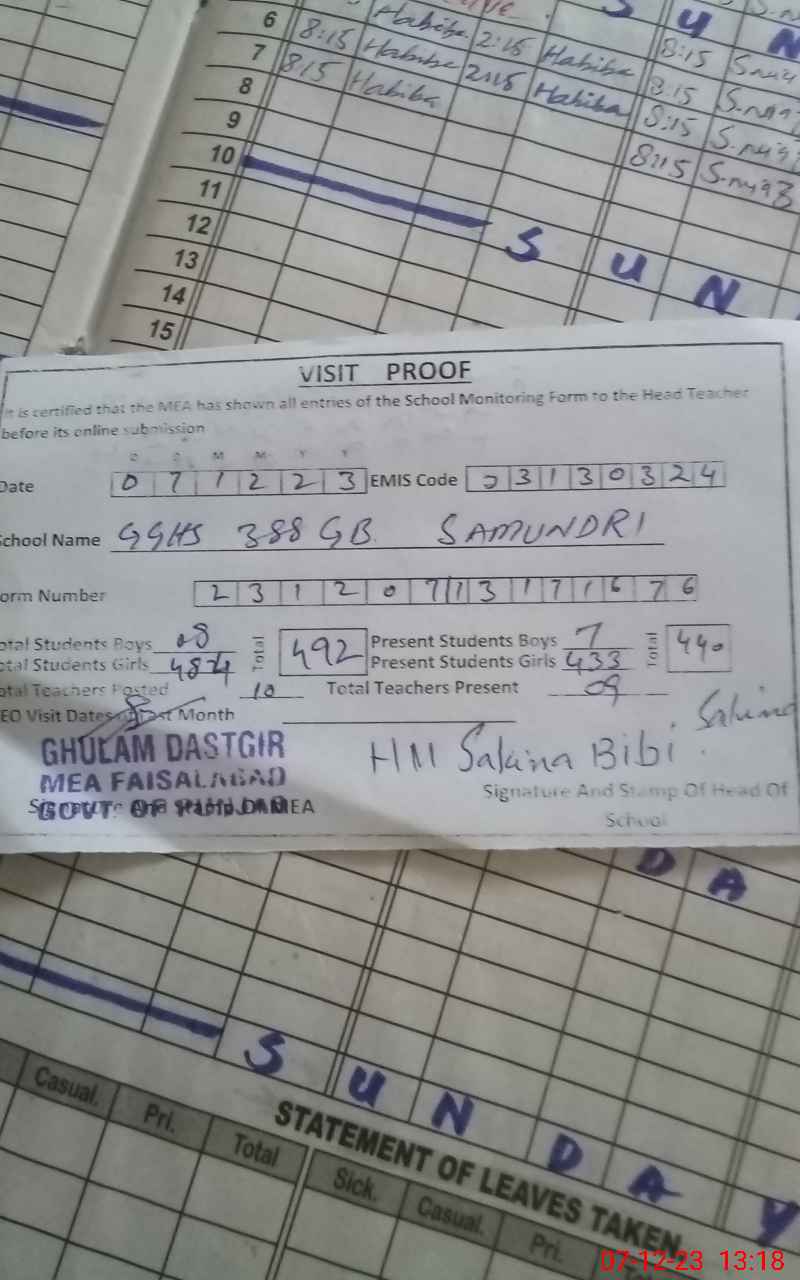 6 8:15 Habiba 2:15 Habiba 8:15
7 8:15 Habiba 2:15 Habiba 8:15
8 8:15
9 8:15
10
11
12 S U N
13
14
15
VISIT PROOF
It is certified that the MEA has shown all entries of the School Monitoring Form to the Head Teacher
before its online submission
D D M M Y Y
Date 0 7 1 2 2 3 EMIS Code 3 3 1 3 0 3 2 4
School Name GGHS 388 GB. SAMUNDRI
Form Number 2 3 1 2 0 7 1 3 1 7 1 6 7 6
Total Students Boys 08 Total 492 Present Students Boys 7 Total 440
Total Students Girls 484 Present Students Girls 433
Total Teachers Posted 10 Total Teachers Present 09
EO Visit Dates of Last Month
GHULAM DASTGIR
MEA FAISALABAD
GOVT. OF PUNJAB
HM Sakina Bibi.
Signature And Stamp Of Head Of
School
D A
S U N D A Y
Casual. Pri. Total
STATEMENT OF LEAVES TAKEN
Sick. Casual. Pri.
07-12-23 13:18